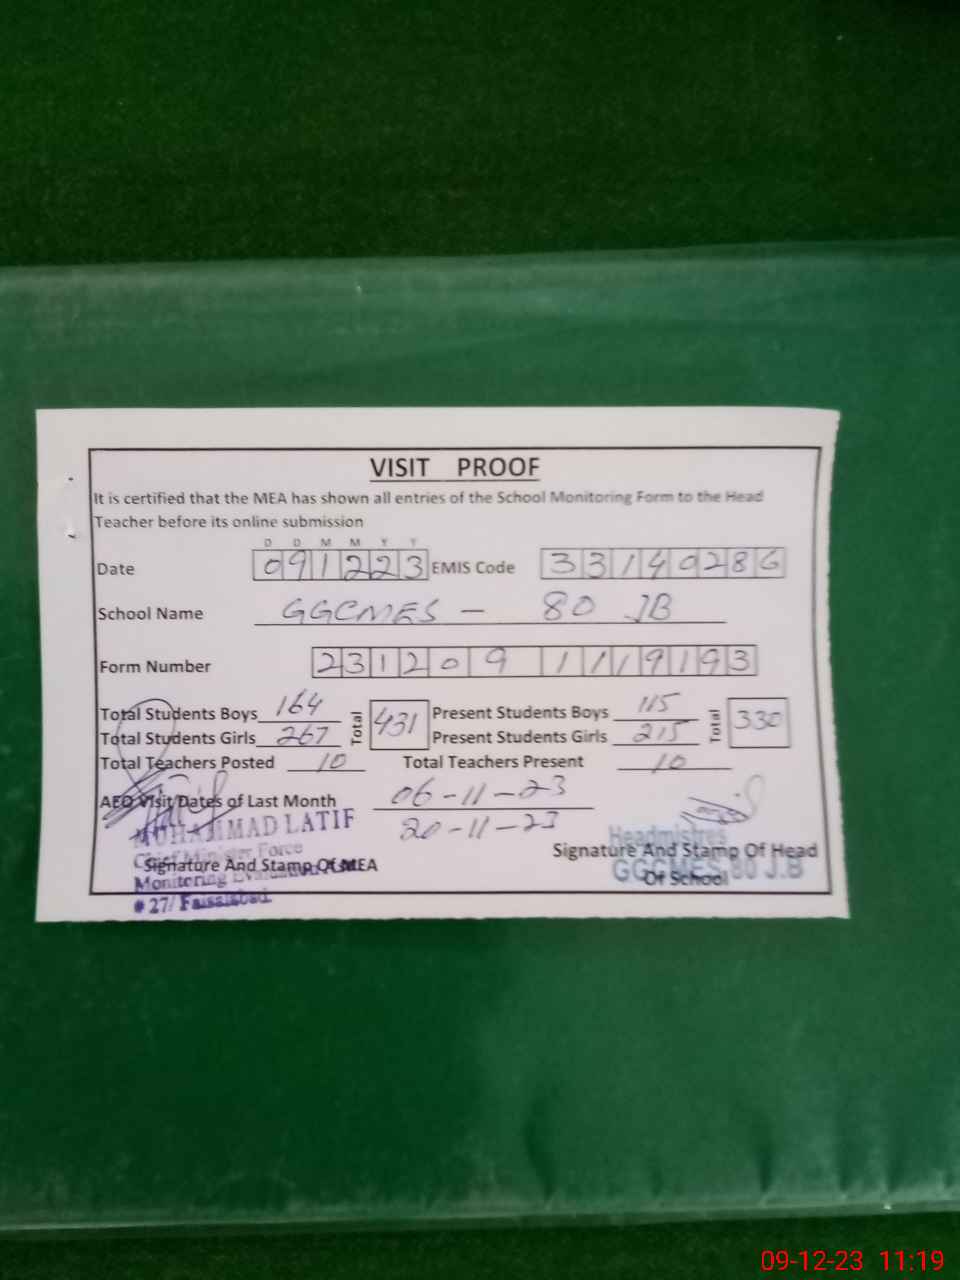 VISIT PROOF
It is certified that the MEA has shown all entries of the School Monitoring Form to the Head
Teacher before its online submission
D D M M Y Y
Date 091223 EMIS Code 33140286
School Name GGCMES - 80 JB
Form Number 231209 1119193
Total Students Boys 164 Total 431 Present Students Boys 115 Total 330
Total Students Girls 267 Present Students Girls 215
Total Teachers Posted 10 Total Teachers Present 10
AEO Visit Dates of Last Month 06-11-23
20-11-23
MUHAMMAD LATIF
Chief Minister Force
Signature And Stamp Of MEA
Monitoring
# 27/ Faisalabad.
Headmistres
Signature And Stamp Of Head
GGCMES 80 J.B
Of School
09-12-23 11:19